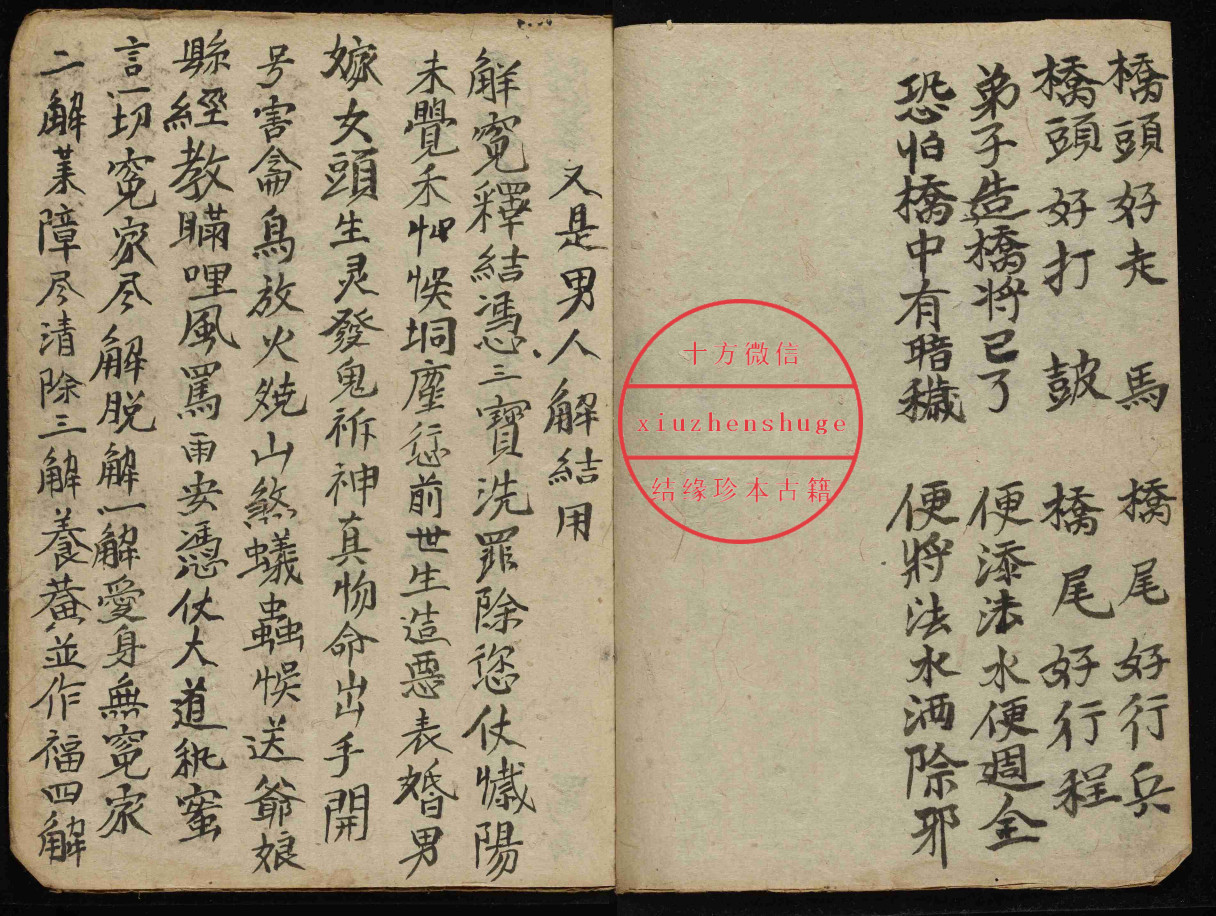 橋頭好走馬 橋尾好行兵
橋頭好打鼓 橋尾好行程
弟子造橋將已了 便添法水便週全
恐怕橋中有暗穢 便將法水洒除邪
十方微信
xiuzhenshuge
结缘珍本古籍
又是男人解結用
解寃釋結憑三寶洗罪除愆仗懺陽
未覺禾 悞垌塵愆前世生造惡表婚男
嫁女頭生灵發鬼祈神真物命出手開
号害侖鳥放火燒山煞蟻蟲悞送爺娘
縣經教瞞哩風罵雨安憑仗大道秘蜜
言一切寃家尽解脱解一解愛身無寃家
二解業障尽清除三解養蚕並作福四解